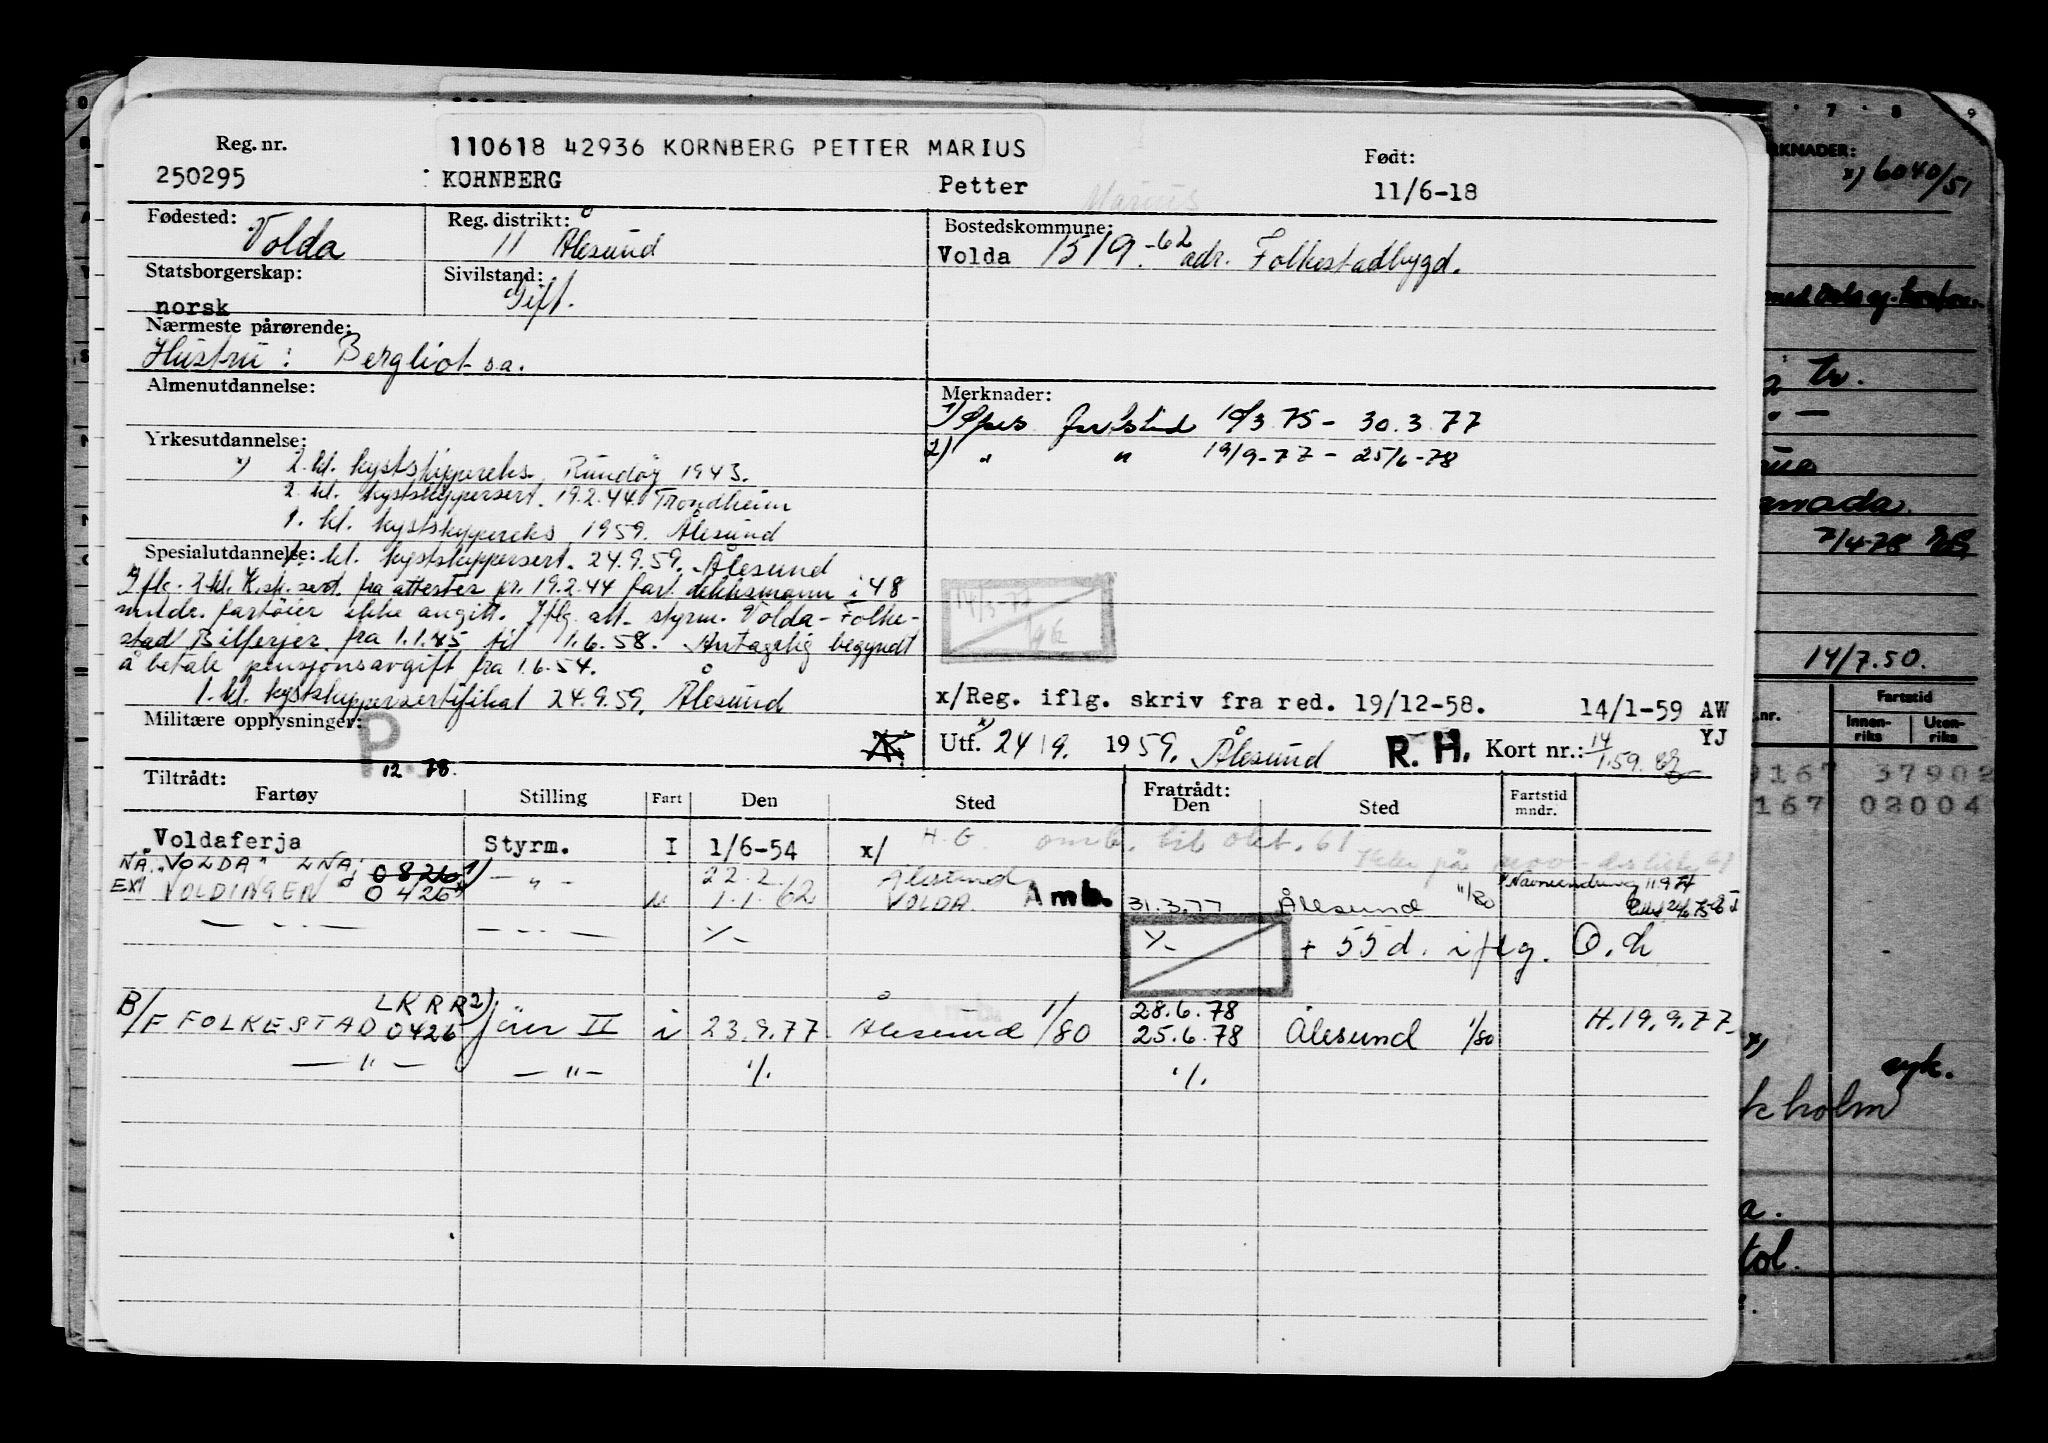 Reg. nr.
110618 42936 KORNBERG PETTER MARIUS
Født:
250295 KORNBERG Petter Marius 11/6-18
Fødested: Volda
Reg. distrikt: 11 Ålesund
Bostedskommune: Volda 1519.-62 adr. Folkestadbygd.
Statsborgerskap: norsk
Sivilstand: Gift.
Nærmeste pårørende:
Hustru: Bergliot s.a.
Almenutdannelse:
Merknader:
1) Spes. 30.3.77
2) " " 19/9-77 - 25/6-78
Yrkesutdannelse:
x) 2. kl. kystskippereks. Rundøy 1943.
2. kl. kystskippersert. 19.2.44. Trondheim
1. kl. kystskippereks 1959. Ålesund
Spesialutdannelse: 1. kl. kystskippersert. 24.9.59. Ålesund
Iflg. 2 kl. K.sk. sert. fra attester pr. 19.2.44 fart. dekksmann i 48
mndr. fartøier ikke angitt. Iflg. att. styrm. Volda-Folke-
stad Bilferjer fra 1.1.45 til 1.6.58. Antagelig begyndt
å betale pensjonsavgift fra 1.6.54.
1. kl. kystskippersertifikat 24.9.59, Ålesund
x/Reg. iflg. skriv fra red. 19/12-58. 14/1-59 AW
YJ
Militære opplysninger:
P. 12 78.
Utf. x) 24/9. 1959, Ålesund R. H. Kort nr.: 14/1.59.
Tiltrådt:
Fartøy Stilling Fart Den Sted
Fratrådt:
Den Sted Fartstid mndr.
Voldaferja Styrm. I 1/6-54 x/ H.G. omb. til okt. 61
NÅ "VOLDA" LNAJ 0826 1) — " — 22.2. Ålesund
x) Navneendring 11.9.74
EX VOLDINGEN 0426 1.1.62 VOLDA Amb. 31.3.77 Ålesund 11/80
— " — — " — ./- ./- + 55 d. iflg. O.h
B/F FOLKESTAD LKRR 0426 2) i 23.9.77 Ålesund 1/80 28.6.78
25.6.78 Ålesund 1/80 H.19.9.77.
— " — — " — ./. ./.
7 8 9
RKNADER:
x) 6040/51
Tr.
7/4-78
14/7.50.
Fartstid
Innen-riks Uten-riks
9167 37902
167 02004
syk.
kholm
a.
tol.